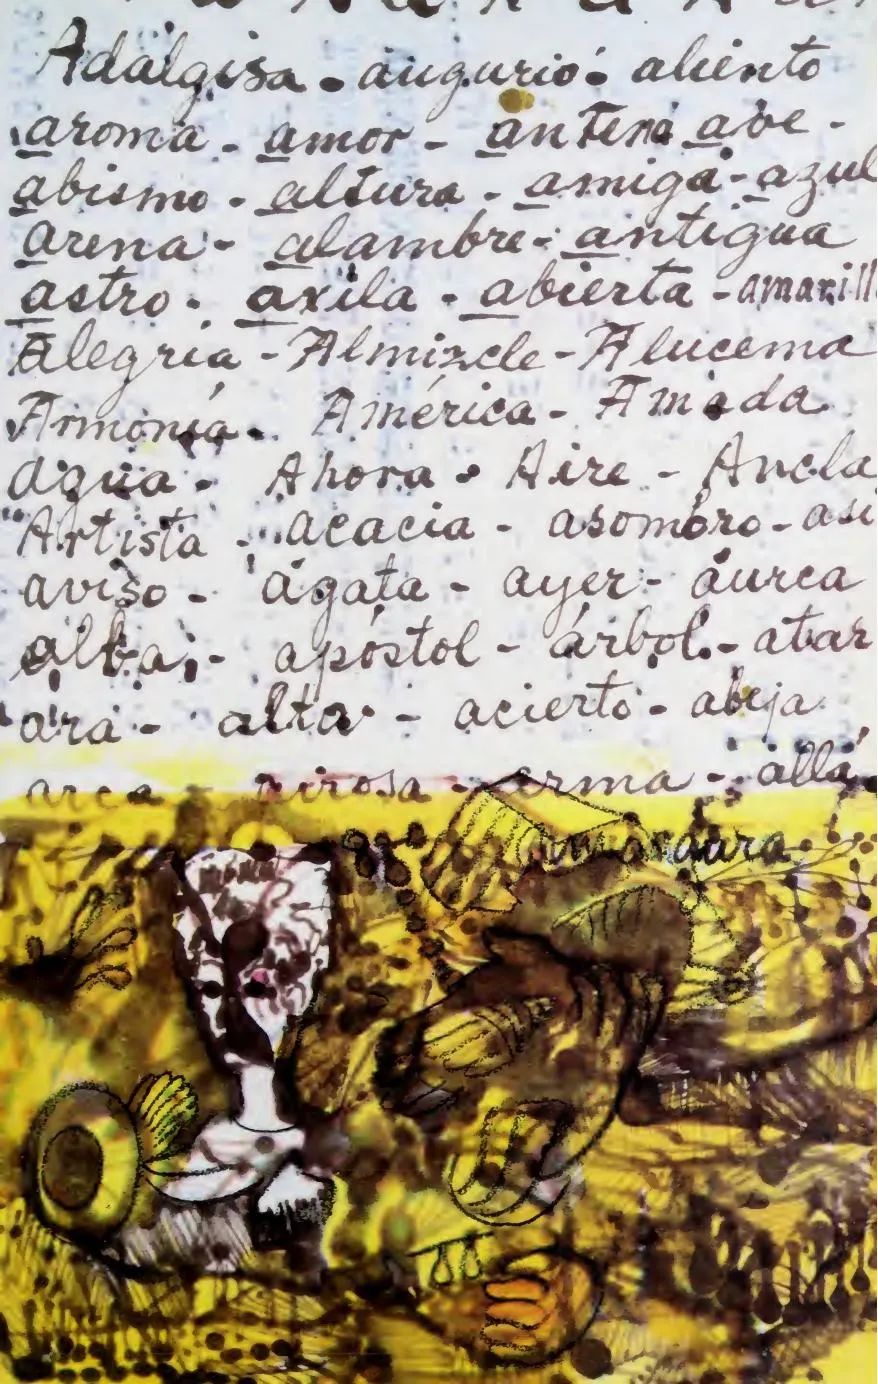 Adalgisa - augurio - aliento
aroma - amor - antena ave -
abismo - altura - amiga - azul
arena - alambre - antigua
astro - axila - abierta - amarill
Alegría - Almizcle - Alucema
Armonía - América - Amada
agua - Ahora - Aire - Ancla
Artista - acacia - asombro - así
aviso - ágata - ayer - áurea
alba - apóstol - árbol - atar
ara - alta - acierto - abeja
arca - airosa - arma - allá